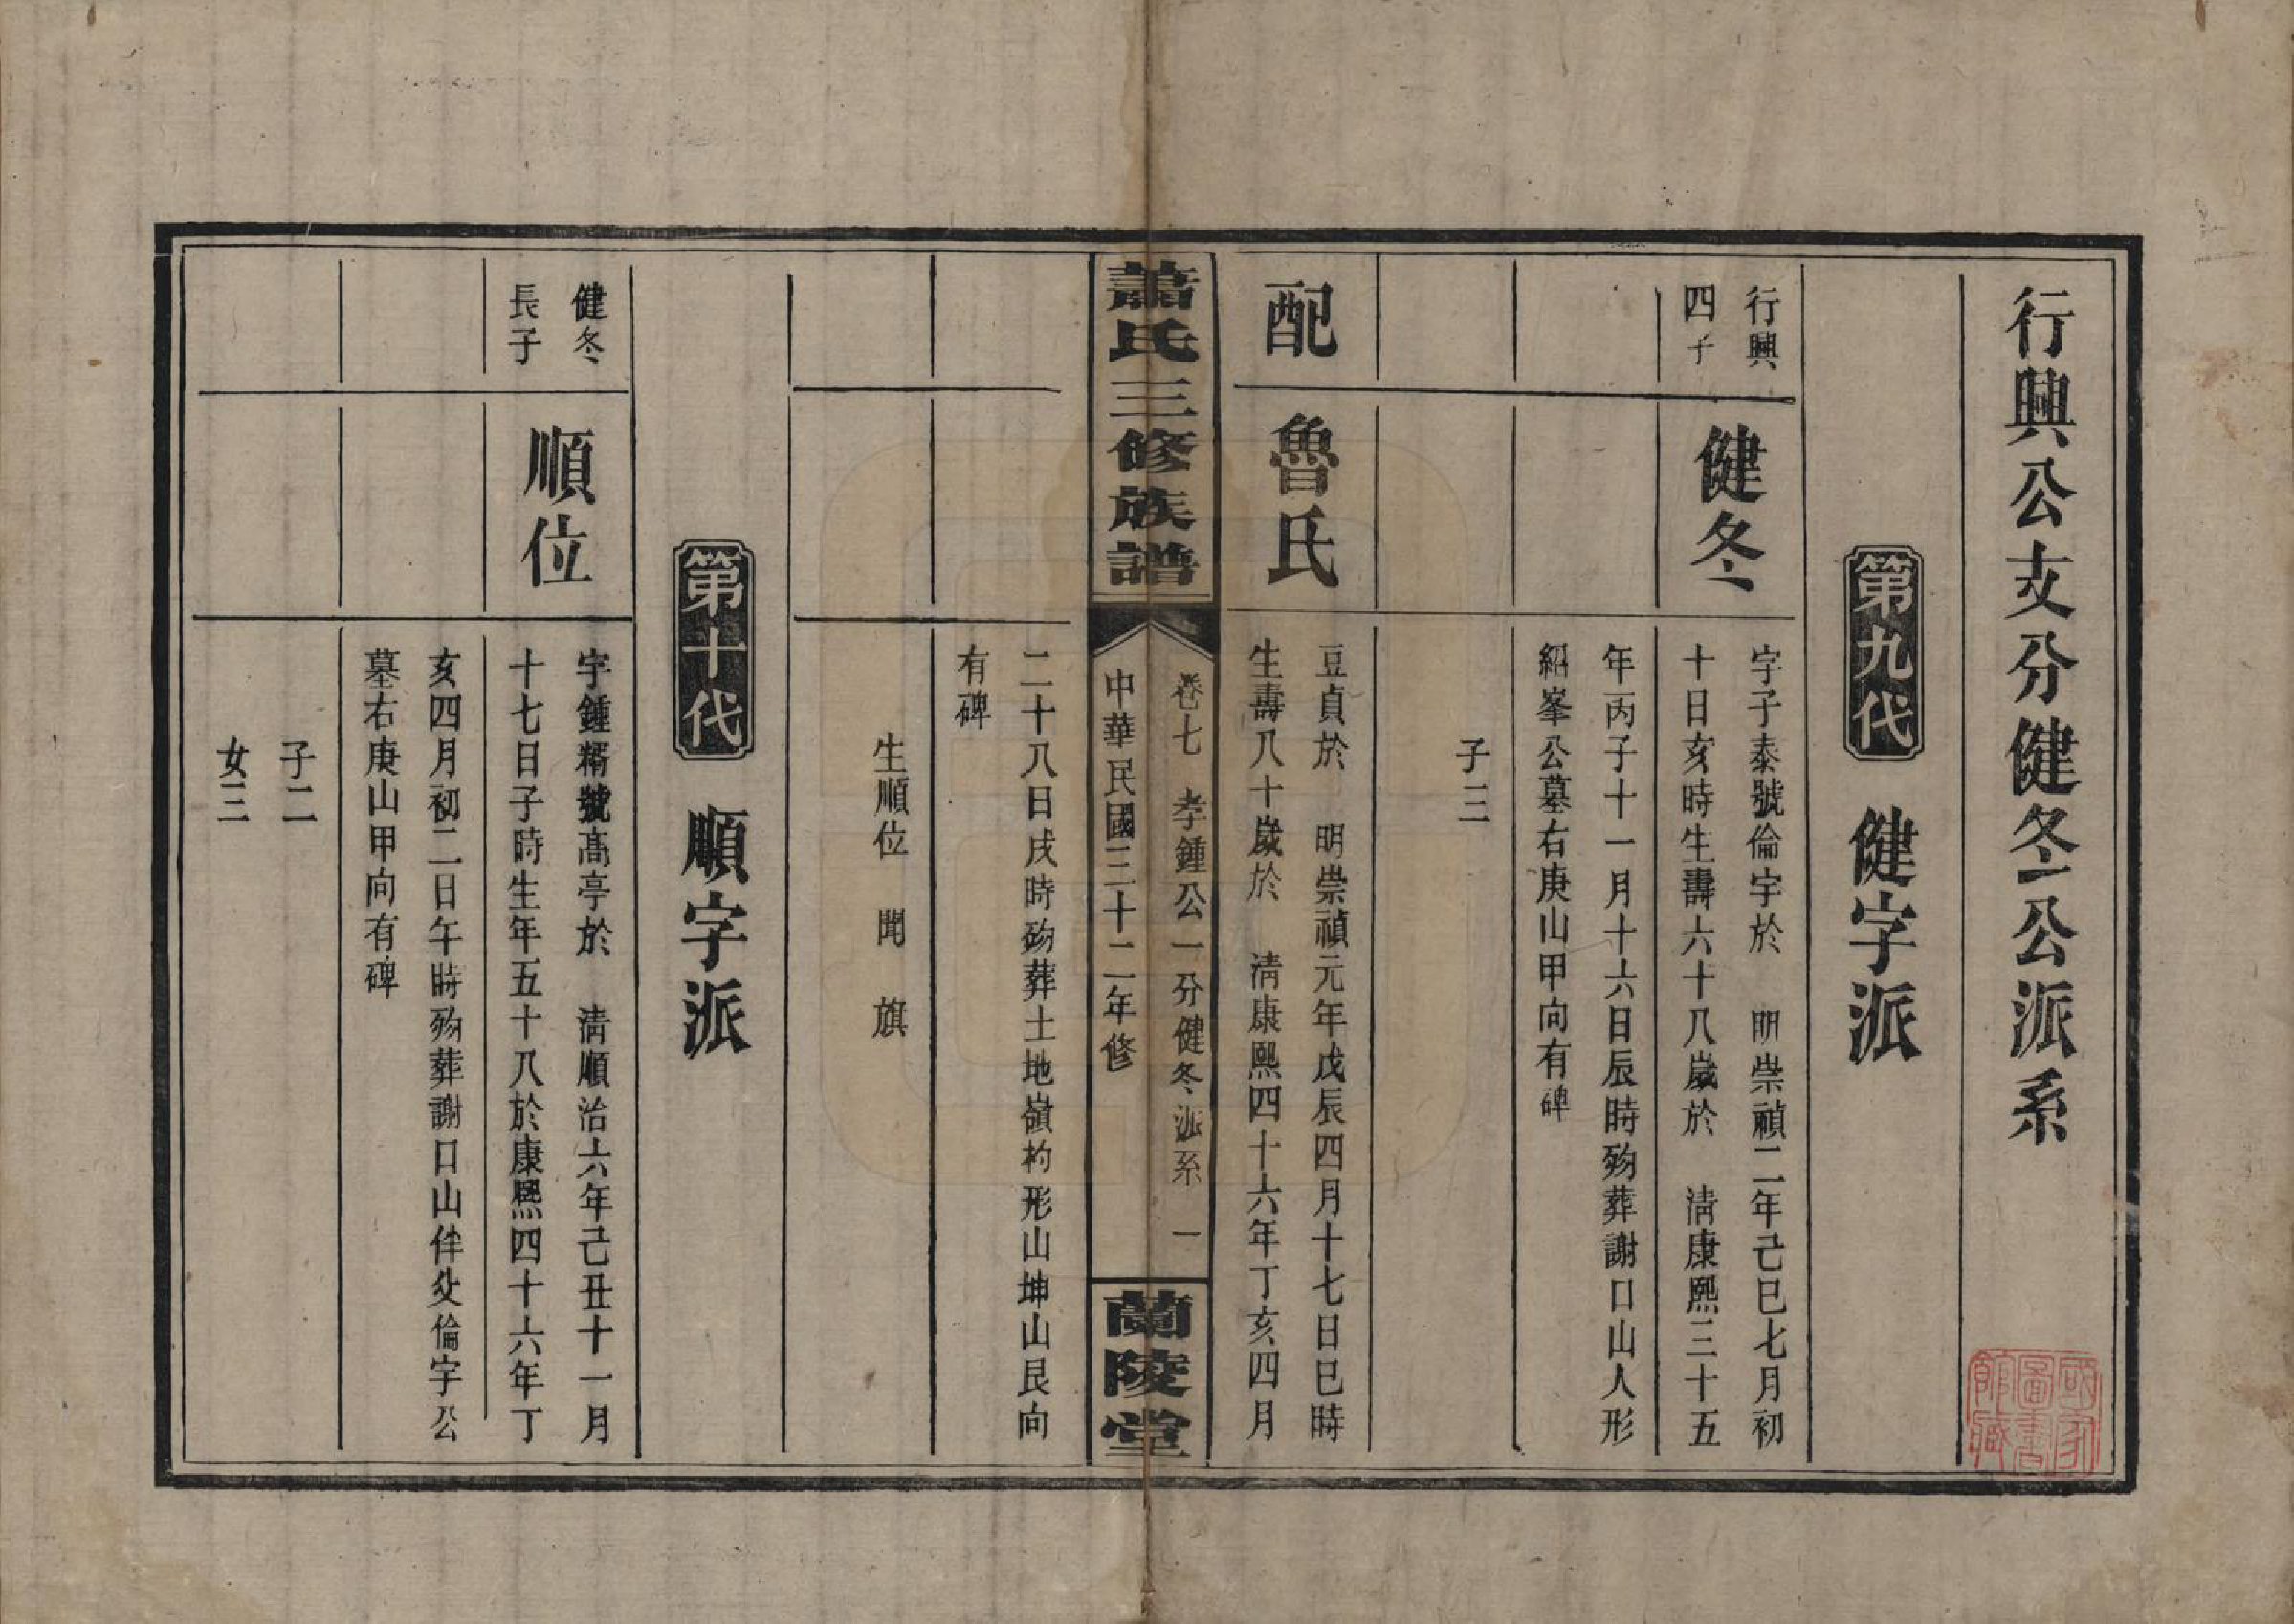 行興公支分健冬公派系
第九代　健字派
行興
四子
健冬
字子泰號倫宇於　明崇禎二年己巳七月初
十日亥時生壽六十八歲於　清康熙三十五
年丙子十一月十六日辰時歿葬謝口山人形
紹峯公墓右庚山甲向有碑
子三
配
魯氏
豆貞於　明崇禎元年戊辰四月十七日巳時
生壽八十歲於　清康熙四十六年丁亥四月
蕭氏三修族譜
卷七　孝鍾公一分健冬派系　一
中華民國三十二年修
蘭陵堂
二十八日戌時歿葬土地嶺杓形山坤山艮向
有碑
生順位　聞　旗
第十代　順字派
健冬
長子
順位
字鍾糈號髙亭於　清順治六年己丑十一月
十七日子時生年五十八於康熙四十六年丁
亥四月初二日午時歿葬謝口山伴父倫宇公
墓右庚山甲向有碑
子二
女三
國家圖書館藏